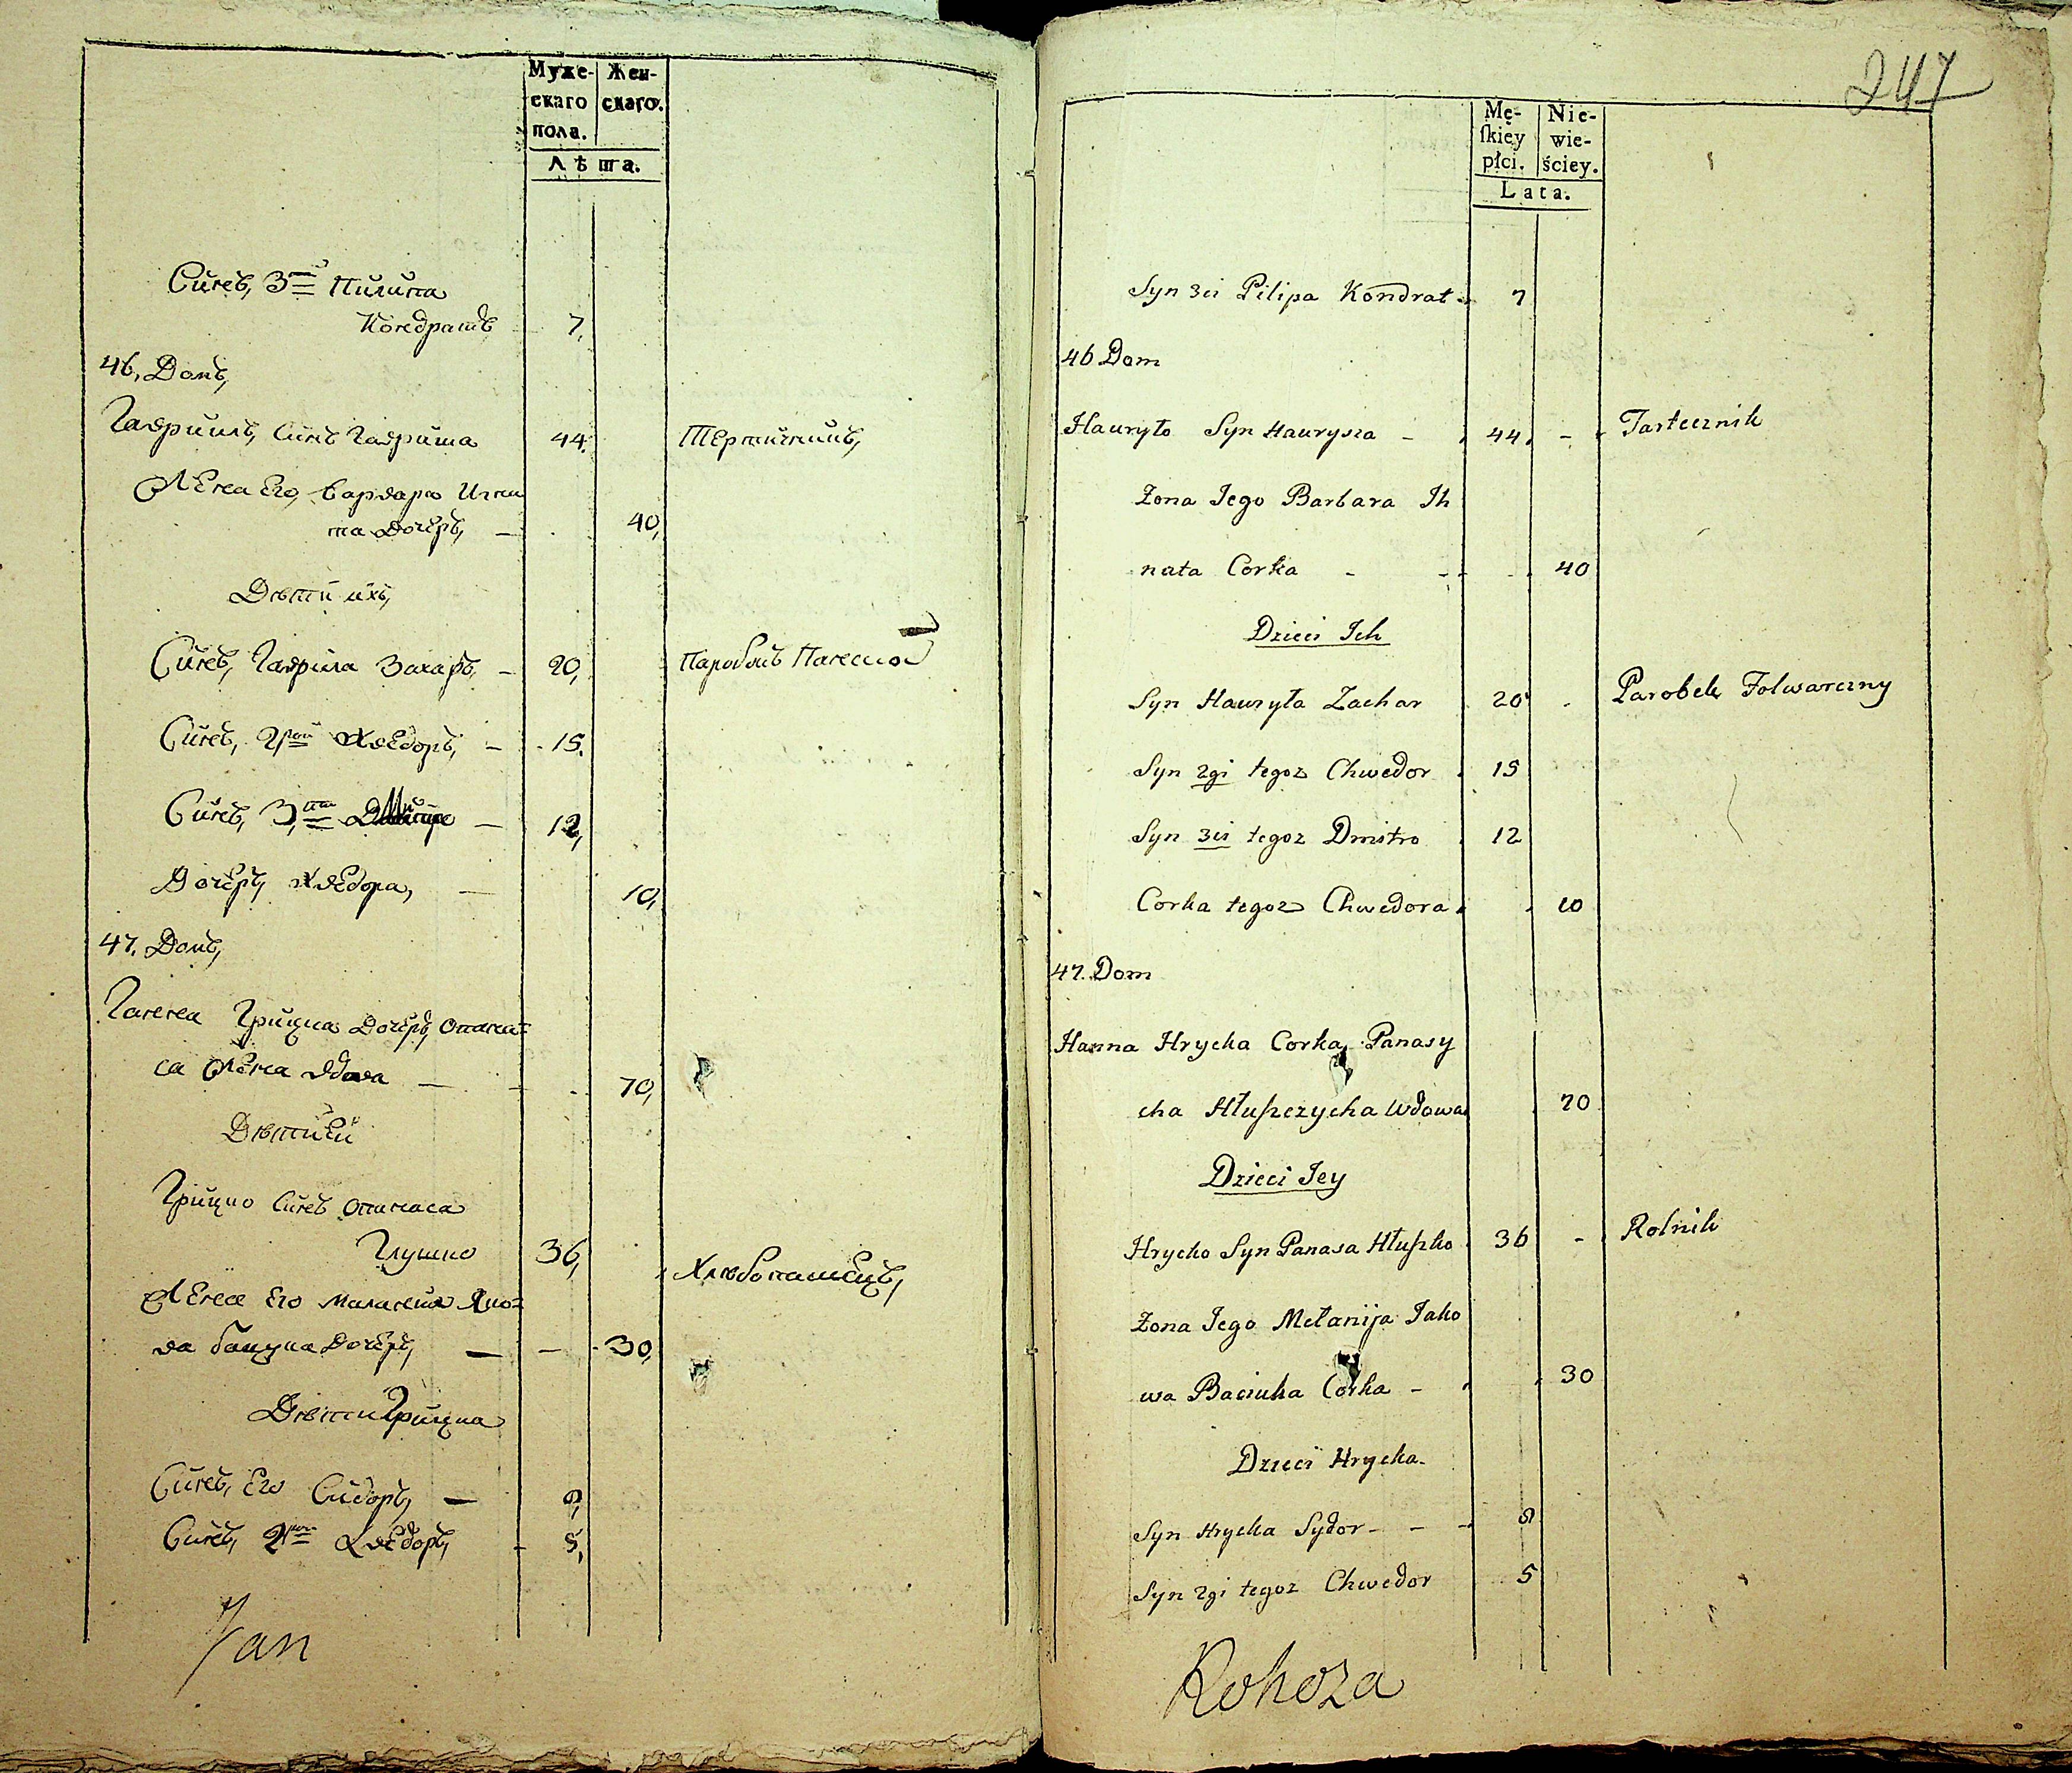 Муже-
скаго
пола.
Жен-
скаго.
Лѣта.
Сынъ, 3й Пилипа
Кондратъ 7,
46, Домъ,
Гаврилъ, Сынъ Гавриша 44. Тертичникъ,
Жена Его, Варвара Игна
та Дочеръ, — 40,
Дѣти ихъ,
Сынъ, Гаврила Захаръ, — 20, Паробокъ Панской
Сынъ, 2гой Хведоръ, — 15.
Сынъ, 3тій Дмитро — 12,
Дочеръ, Хведора, — 10,
47. Домъ,
Ганна Грицка Дочеръ, Опана=
са Жена вдова — 70,
Дѣти Ей
Грицко Сынъ Опанаса
Глушко 36, Хлѣбопашецъ,
Жена Его Малания Яко=
ва Бацука Дочеръ, — — 30,
Дѣти Грицка
Сынъ, Его Сидоръ, — 9,
Сынъ, 2гой Хведоръ, 5,
Jan
247
Mę-
ſkiey
płci.
Nie-
wie-
ściey.
Lata.
Syn 3ci Pilipa Kondrat 7
46 Dom
Hauryło Syn Haurysza - 44. - Tartcznik
Zona Jego Barbara Ih
nata Corka - - 40
Dzieci Ich
Syn Hauryła Zachar 20 . Parobek Folwarczny
Syn 2gi tegoz Chwedor 15
Syn 3ci tegoz Dmitro 12
Corka tegoz Chwedora. 10
47. Dom
Hanna Hrycka Corka Panasy
cha Hłuszczycha Wdowa 70
Dzieci Jey
Hrycko Syn Panasa Hłuszko 36 - Rolnik
Zona Jego Mełanija Jako
wa Baciuka Corka - 30
Dzieci Hrycka.
Syn Hrycka Sydor - - - 9
Syn 2gi tegoz Chwedor 5
Rohoza